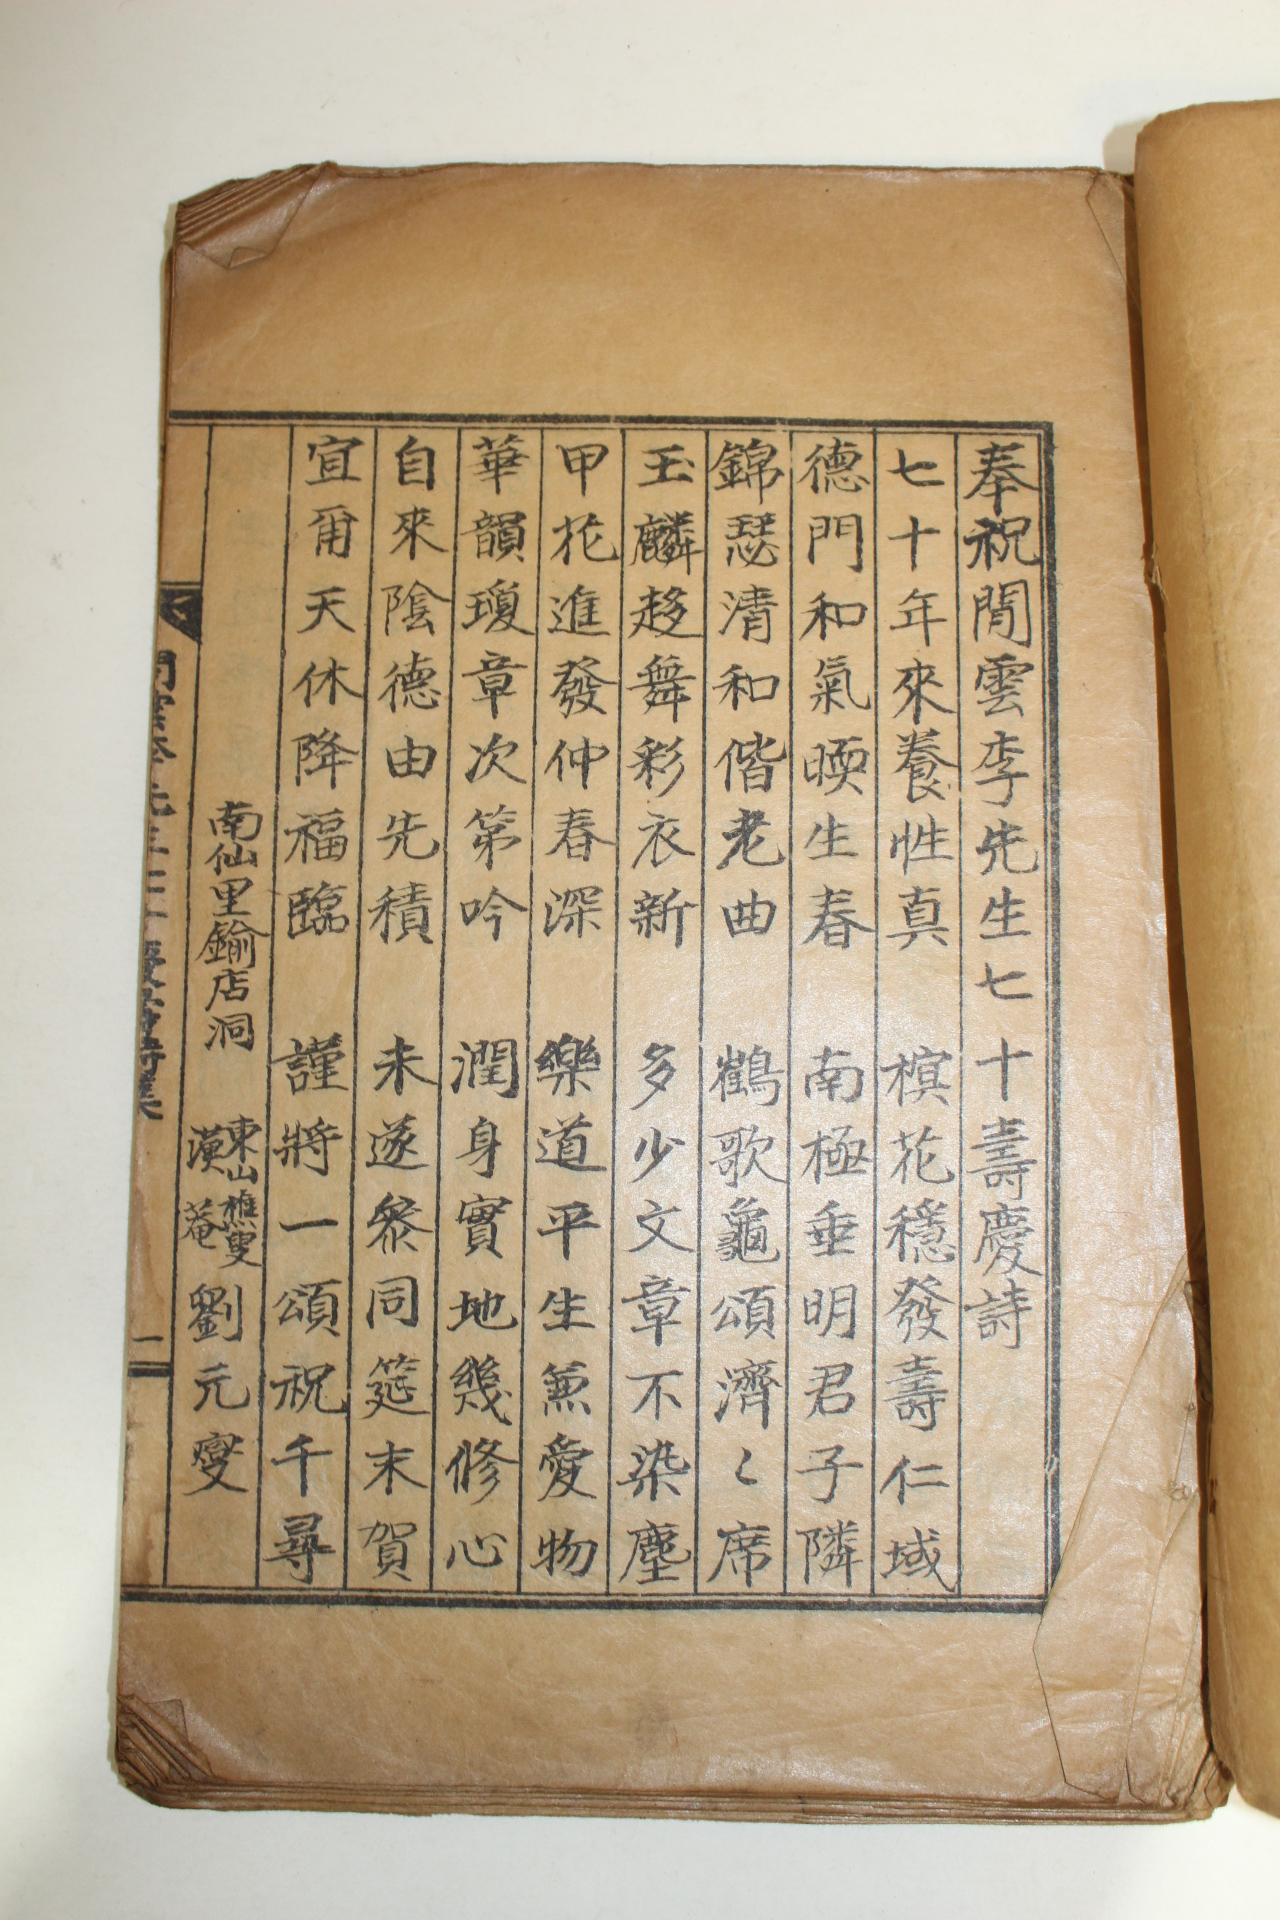 奉祝閒雲李先生七十壽慶詩
七十年來養性真 槟花穩發壽仁域
德門和氣暎生春 南極垂明君子隣
錦瑟清和偕老曲 鶴歌龜頌濟〻席
玉麟趍舞彩衣新 多少文章不染塵
甲花進發仲春深 樂道平生兼愛物
華韻瓊章次第吟 潤身實地幾修心
自來陰德由先積 未遂叅同筵末賀
宜爾天休降福臨 謹將一頌祝千尋
南仙里鍮店洞 東山樵叟
漢菴 劉元燮
一